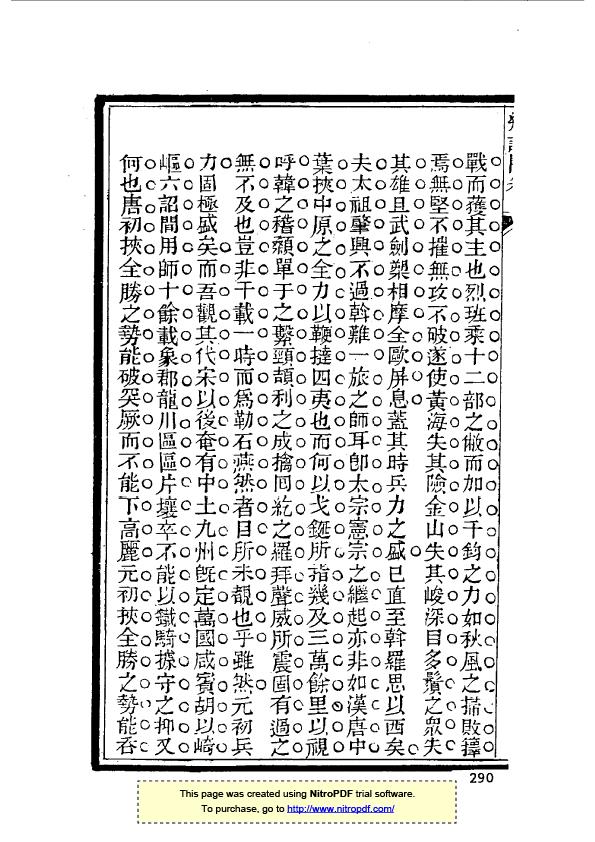 戰而蔆其主也烈班乘十二部之敝而加以千鈞之力如秋風之掃敗籜
焉無堅不摧無攻不破遂使黃海失其險金山失其峻深目多鬚之眾失
其雄且武劍槊相摩全歐屏息蓋其時兵力之盛已直至斡羅思以西矣
夫太祖肇興不過斡難一旅之師耳卽太宗憲宗之繼起亦非如漢唐中
葉挾中原之全力以鞭撻四夷也而何以戈鋋所指幾及三萬餘里以視
呼韓之稽顙單于之繫頸頡利之成擒囘紇之羅拜聲威所震固有過之
無不及也豈非千載一時而為勒石燕然者目所未覩也乎雖然元初兵
力固極盛矣而吾觀其代宋以後奄有中土九州旣定萬國咸賓胡以崎
嶇六詔間用師十餘載象郡龍川區區片壤卒不能以鐵騎據守之抑又
何也唐初挾全勝之勢能破突厥而不能下高麗元初挾全勝之勢能吞
290
This page was created using NitroPDF trial software.
To purchase, go to http://www.nitropdf.com/